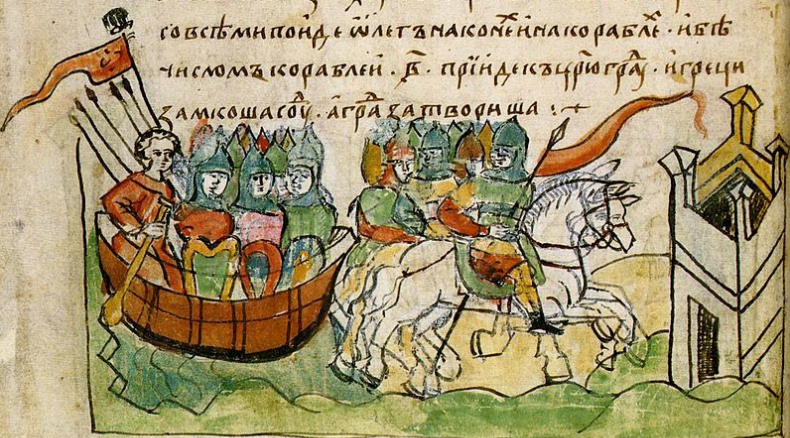 со всѣми поиде ѡлегъ на конеⷯ и на кораблеⷯ · и бѣ
числомъ кораблей · в҃ · прїиде къ цр҃югра҃ⷣ · и греци
замкоша соуⷣ · а граⷣ затвориша :+